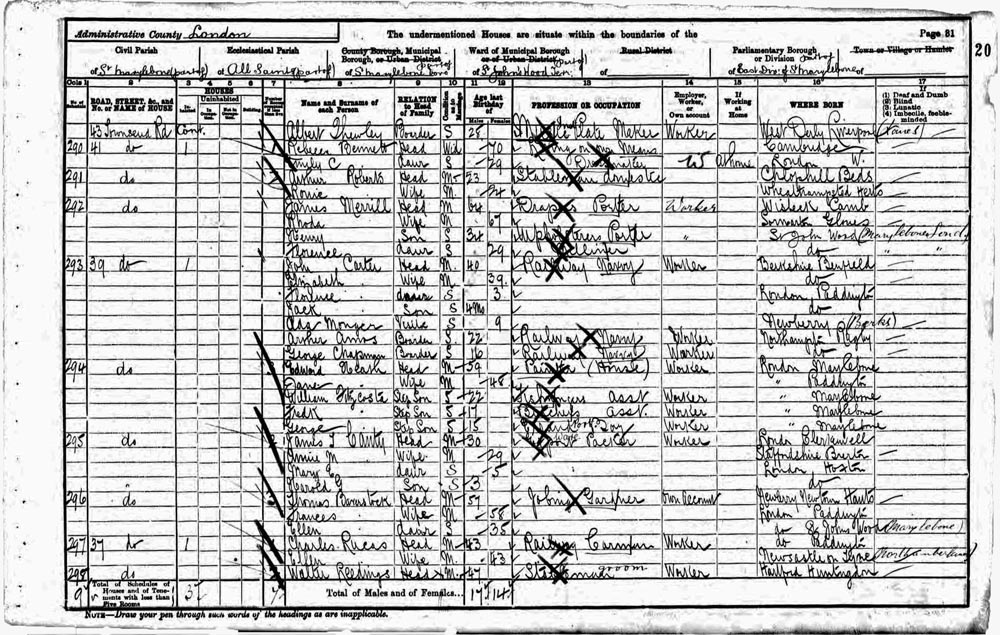 Administrative County London The undermentioned Houses are situate within the boundaries of the Page 31
20
Civil Parish Ecclesiastical Parish County Borough, Municipal Borough, or Urban District Ward of Municipal Borough or of Urban District Rural District Parliamentary Borough or Division Town or Village or Hamlet
of St Marylebone (part of) of All Saints (part of) of St Marylebone of St John's Wood of East Div. of St Marylebone of
Cols 1 2 3 4 5 6 7 8 9 10 11 12 13 14 15 16 17
ROAD, STREET, &c., and No. or NAME of HOUSE HOUSES Uninhabited Building Name and Surname of each Person RELATION to Head of Family Age last Birthday of Males Females PROFESSION OR OCCUPATION Employer, Worker, or Own account If Working at Home WHERE BORN (1) Deaf and Dumb (2) Blind (3) Lunatic (4) Imbecile, feeble-minded
43 Townsend Rd Cont. Albert Boarder S 25 Plate Maker Worker West Derby Liverpool (Lancs)
290 41 do 1 Rebecca Bennett Head Wid 70 Living on own Means Cambridge
Emily C. daur S 29 Dressmaker at home London W.
291 do Arthur Roberts Head M 23 Stableman domestic Beds
Wife M 24 Wheathampstead Herts
292 do James Merrill Head M 64 Drapers Porter Worker Wisbech Camb
Rhoda Wife M 67 Glouces
Henry Son S 34 Upholsterers Porter " St John Wood (Marylebone Lond.)
Florence daur S 29 Milliner do "
293 39 do 1 John Carter Head M 40 Railway Navvy Worker Berkshire
Elizabeth Wife M 39 do
Florence daur S 3 London Paddington
Jack Son S 4 Mo do
Ada Monger Visitor S 9 Newberry (Berks)
Arthur Amos Boarder S 22 Railway Navvy Worker Northampton
George Chapman Boarder S 16 Railway Navvy Worker do
294 do Edward Heath Head M 39 Painter (House) Worker London Marylebone
Jane Wife M 48 " Paddington
William Step Son S 22 Asst Worker " Marylebone
Fredk Step Son S 17 Butchers asst. Worker " Marylebone
George Step Son S 15 Boy Worker " Marylebone
295 do James T Canty Head M 30 Packer Worker London Clerkenwell
Annie M. Wife M 29 Staffordshire Burton
Mary daur S 5 London Hoxton
" Harold G Son S 3 do
296 do Thomas Head M 57 Jobing Gardner Own Account Newberry Newtown Hants
Frances Wife M 58 London Paddington
Ellen daur S 35 do St Johns Wood (Marylebone)
297 37 do 1 Charles Lucas Head M 43 Railway Carman Worker do Paddington
Ellen Wife M 43 Newcastle on Tyne (Northumberland)
298 do Walter Head M 47 groom Worker Hartford Huntingdon
9 Total of Schedules of Houses and of Tenements with less than Five Rooms 3 Total of Males and of Females... 17 14
NOTE—Draw your pen through such words of the headings as are inapplicable.